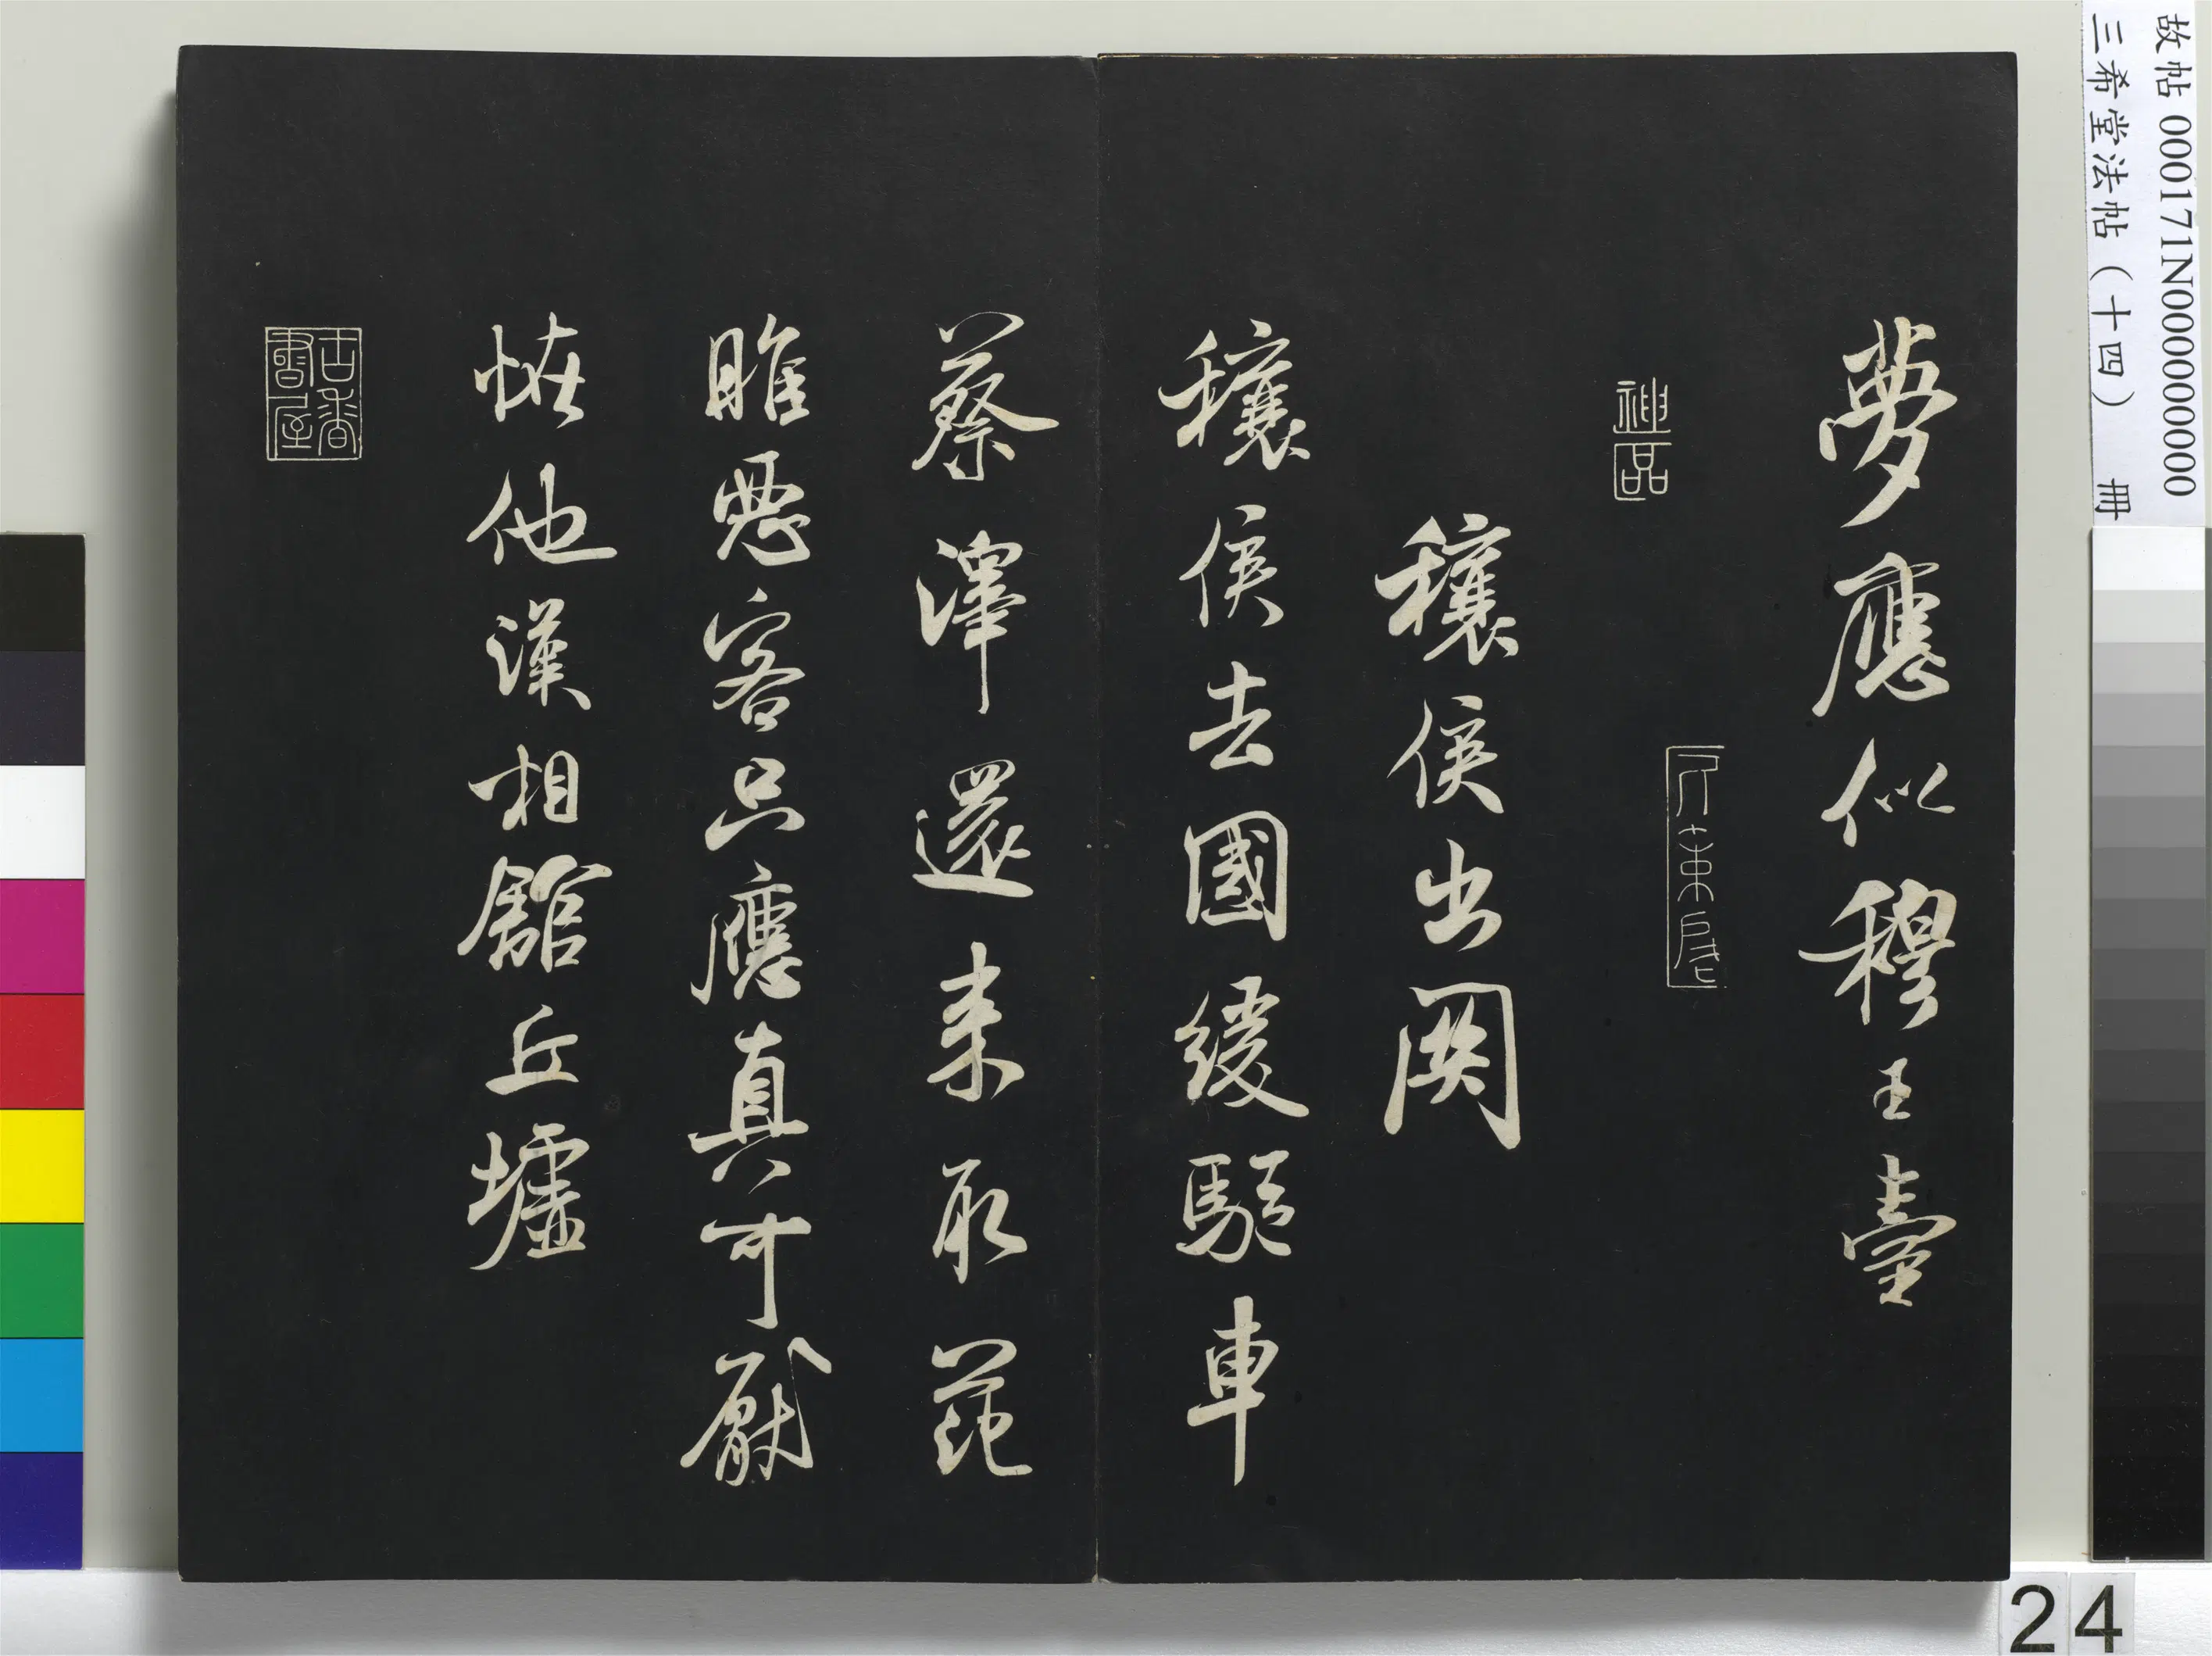 故帖 000171N000000000
三希堂法帖（十四） 冊
夢應似穆王臺
穰侯出関
穰侯去國緩驅車
蔡澤還来取范
睢惡客只應真可厭
恠他漢相舘丘墟
古香書屋
24